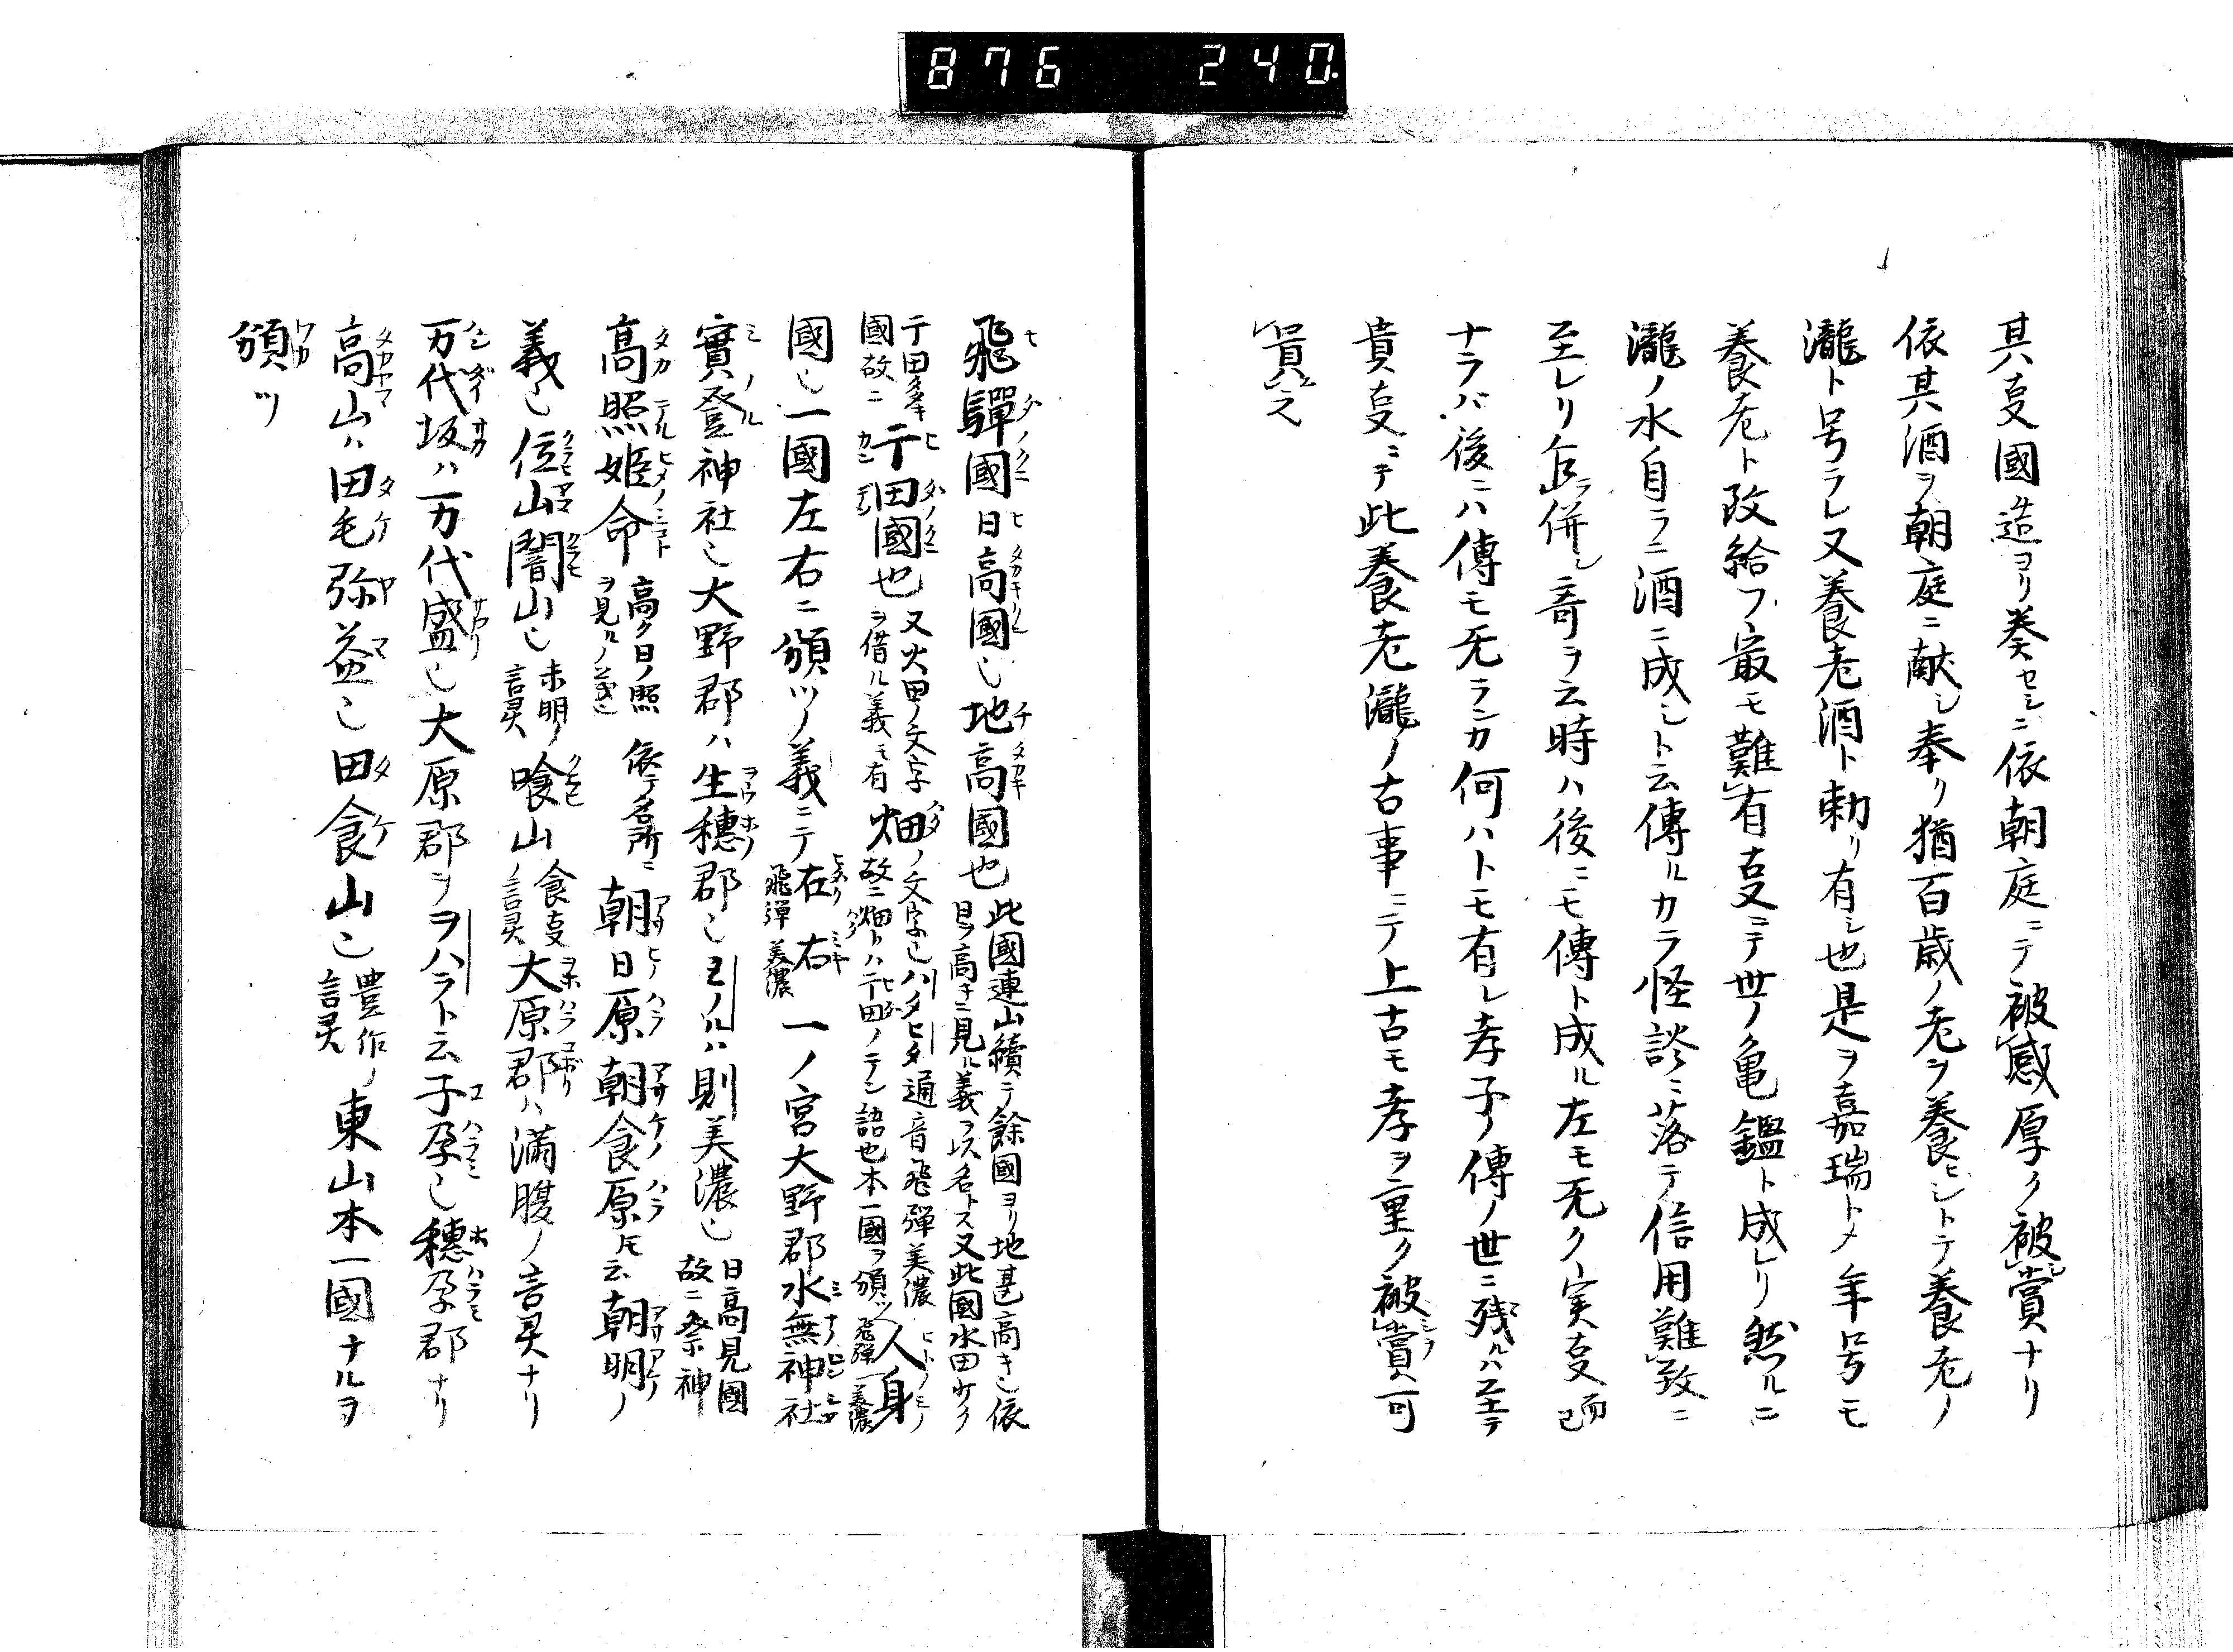 876 240
其叓國造ヨリ奏セシニ依朝庭ニテ被感厚ク被賞ナリ
依其酒ヲ朝庭ニ献シ奉リ猶百歳ノ老ヲ養ヒシトテ養老ノ
瀧ト号ラレ又養老酒ト勅リ有シ也是ヲ嘉瑞トメ年号モ
養老ト改給フ最モ難有古叓ニテ世ノ亀鑑ト成レリ然ルニ
瀧ノ水自ラニ酒ニ成シト云傳ルカラ怪談ニ落テ信用難致ニ
至レリ乍併シ奇ヲ云時ハ後ニモ傳ト成ル左モ旡ク実叓而已
ナラバ後ニハ傳モ旡ランカ何ハトモ有レ孝子ノ傳ノ世ニ残ルハ至テ
貴叓ニテ此養老瀧ノ古事ニテ上古モ孝ヲ重ク被賞可
貴之
飛驒國日高國也地高國也此國連山續テ餘國ヨリ地甚高キ也依
日ヲ高キニ見ル義ヲ以名トス又此國水田少ク
干田多キ
國故ニ干田國也又火田ノ文字
ヲ借ル義モ有畑ノ文字也ハタヒタ通音飛弾美濃
故ニ畑トハ干田ノテン語也本一國ヲ頒ツ人身ノ
飛弾美濃
國也一國左右ニ頒ツノ義ニテ左右
飛弾美濃一ノ宮大野郡水無神社
實登神社也大野郡ハ生穗郡也ミノルハ則美濃也日高見國
故ニ祭神
高照姫命高ク日ノ照
ヲ見ルノ義也依テ名所ニ朝日原朝食原トモ云朝明ノ
義也位山闇山也未明ノ
言灵喰山食叓
ノ言灵大原郡ハ満腹ノ言灵ナリ
万代坂ハ万代盛也大原郡ヲヲハラト云子孕也穗孕郡ナリ
高山ハ田毛弥益也田食山也豊作ノ
言灵東山本一國ナルヲ
頒ツ